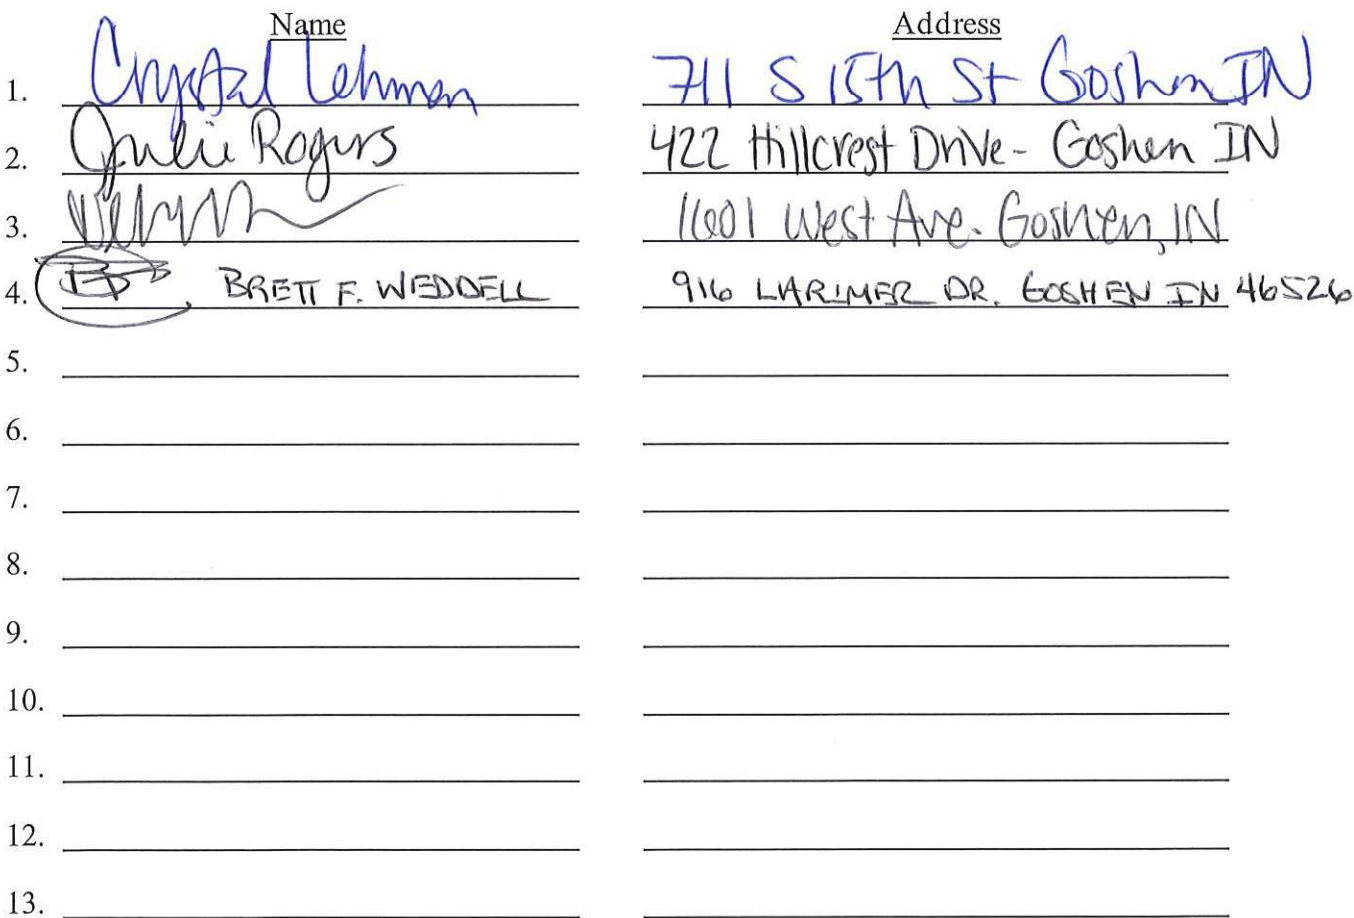 Name Address
1. Crystal Lehman 711 S 15th St Goshen IN
2. Julie Rogers 422 Hillcrest Drive - Goshen IN
3. 1601 West Ave. Goshen, IN
4. BRETT F. WEDDELL 916 LARIMER DR. GOSHEN IN 46526
5.
6.
7.
8.
9.
10.
11.
12.
13.